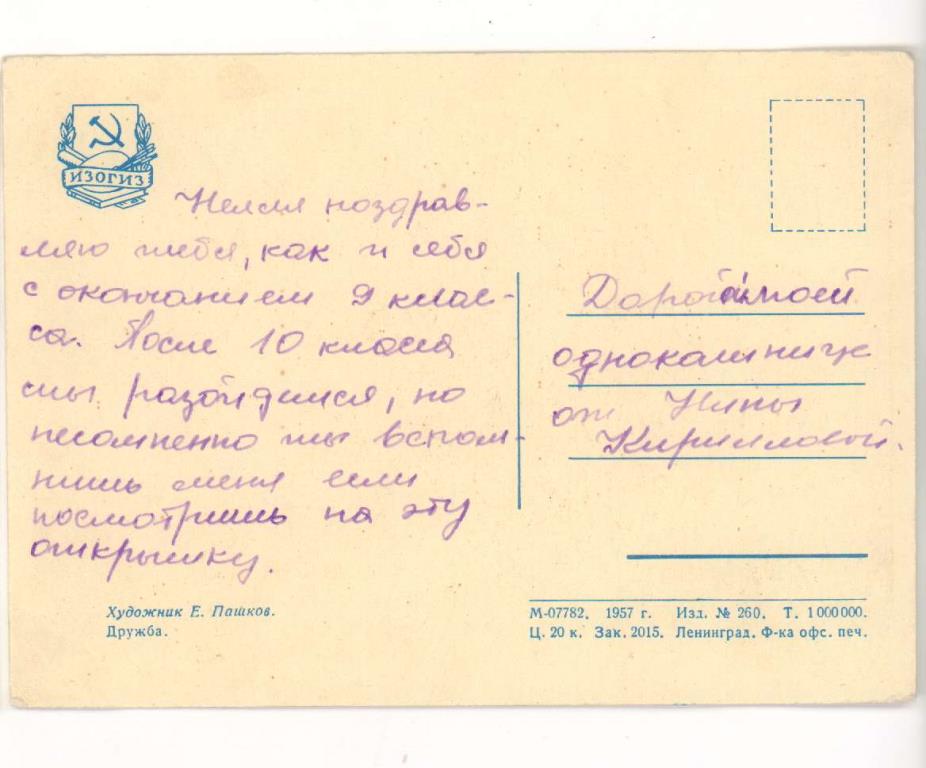 ИЗОГИЗ
Нелля поздрав-
ляю тебя, как и себя
с окончанием 9 клас-
са. После 10 класса
мы разойдимся, но
несомненно ты вспом-
нишь меня если
посмотришь на эту
открытку.
Дорогой моей
однокашнице
от Нины
Кирилловой.
Художник Е. Пашков.
Дружба.
М-07782. 1957 г. Изд. № 260. Т. 1 000 000.
Ц. 20 к. Зак. 2015. Ленинград. Ф-ка офс. печ.